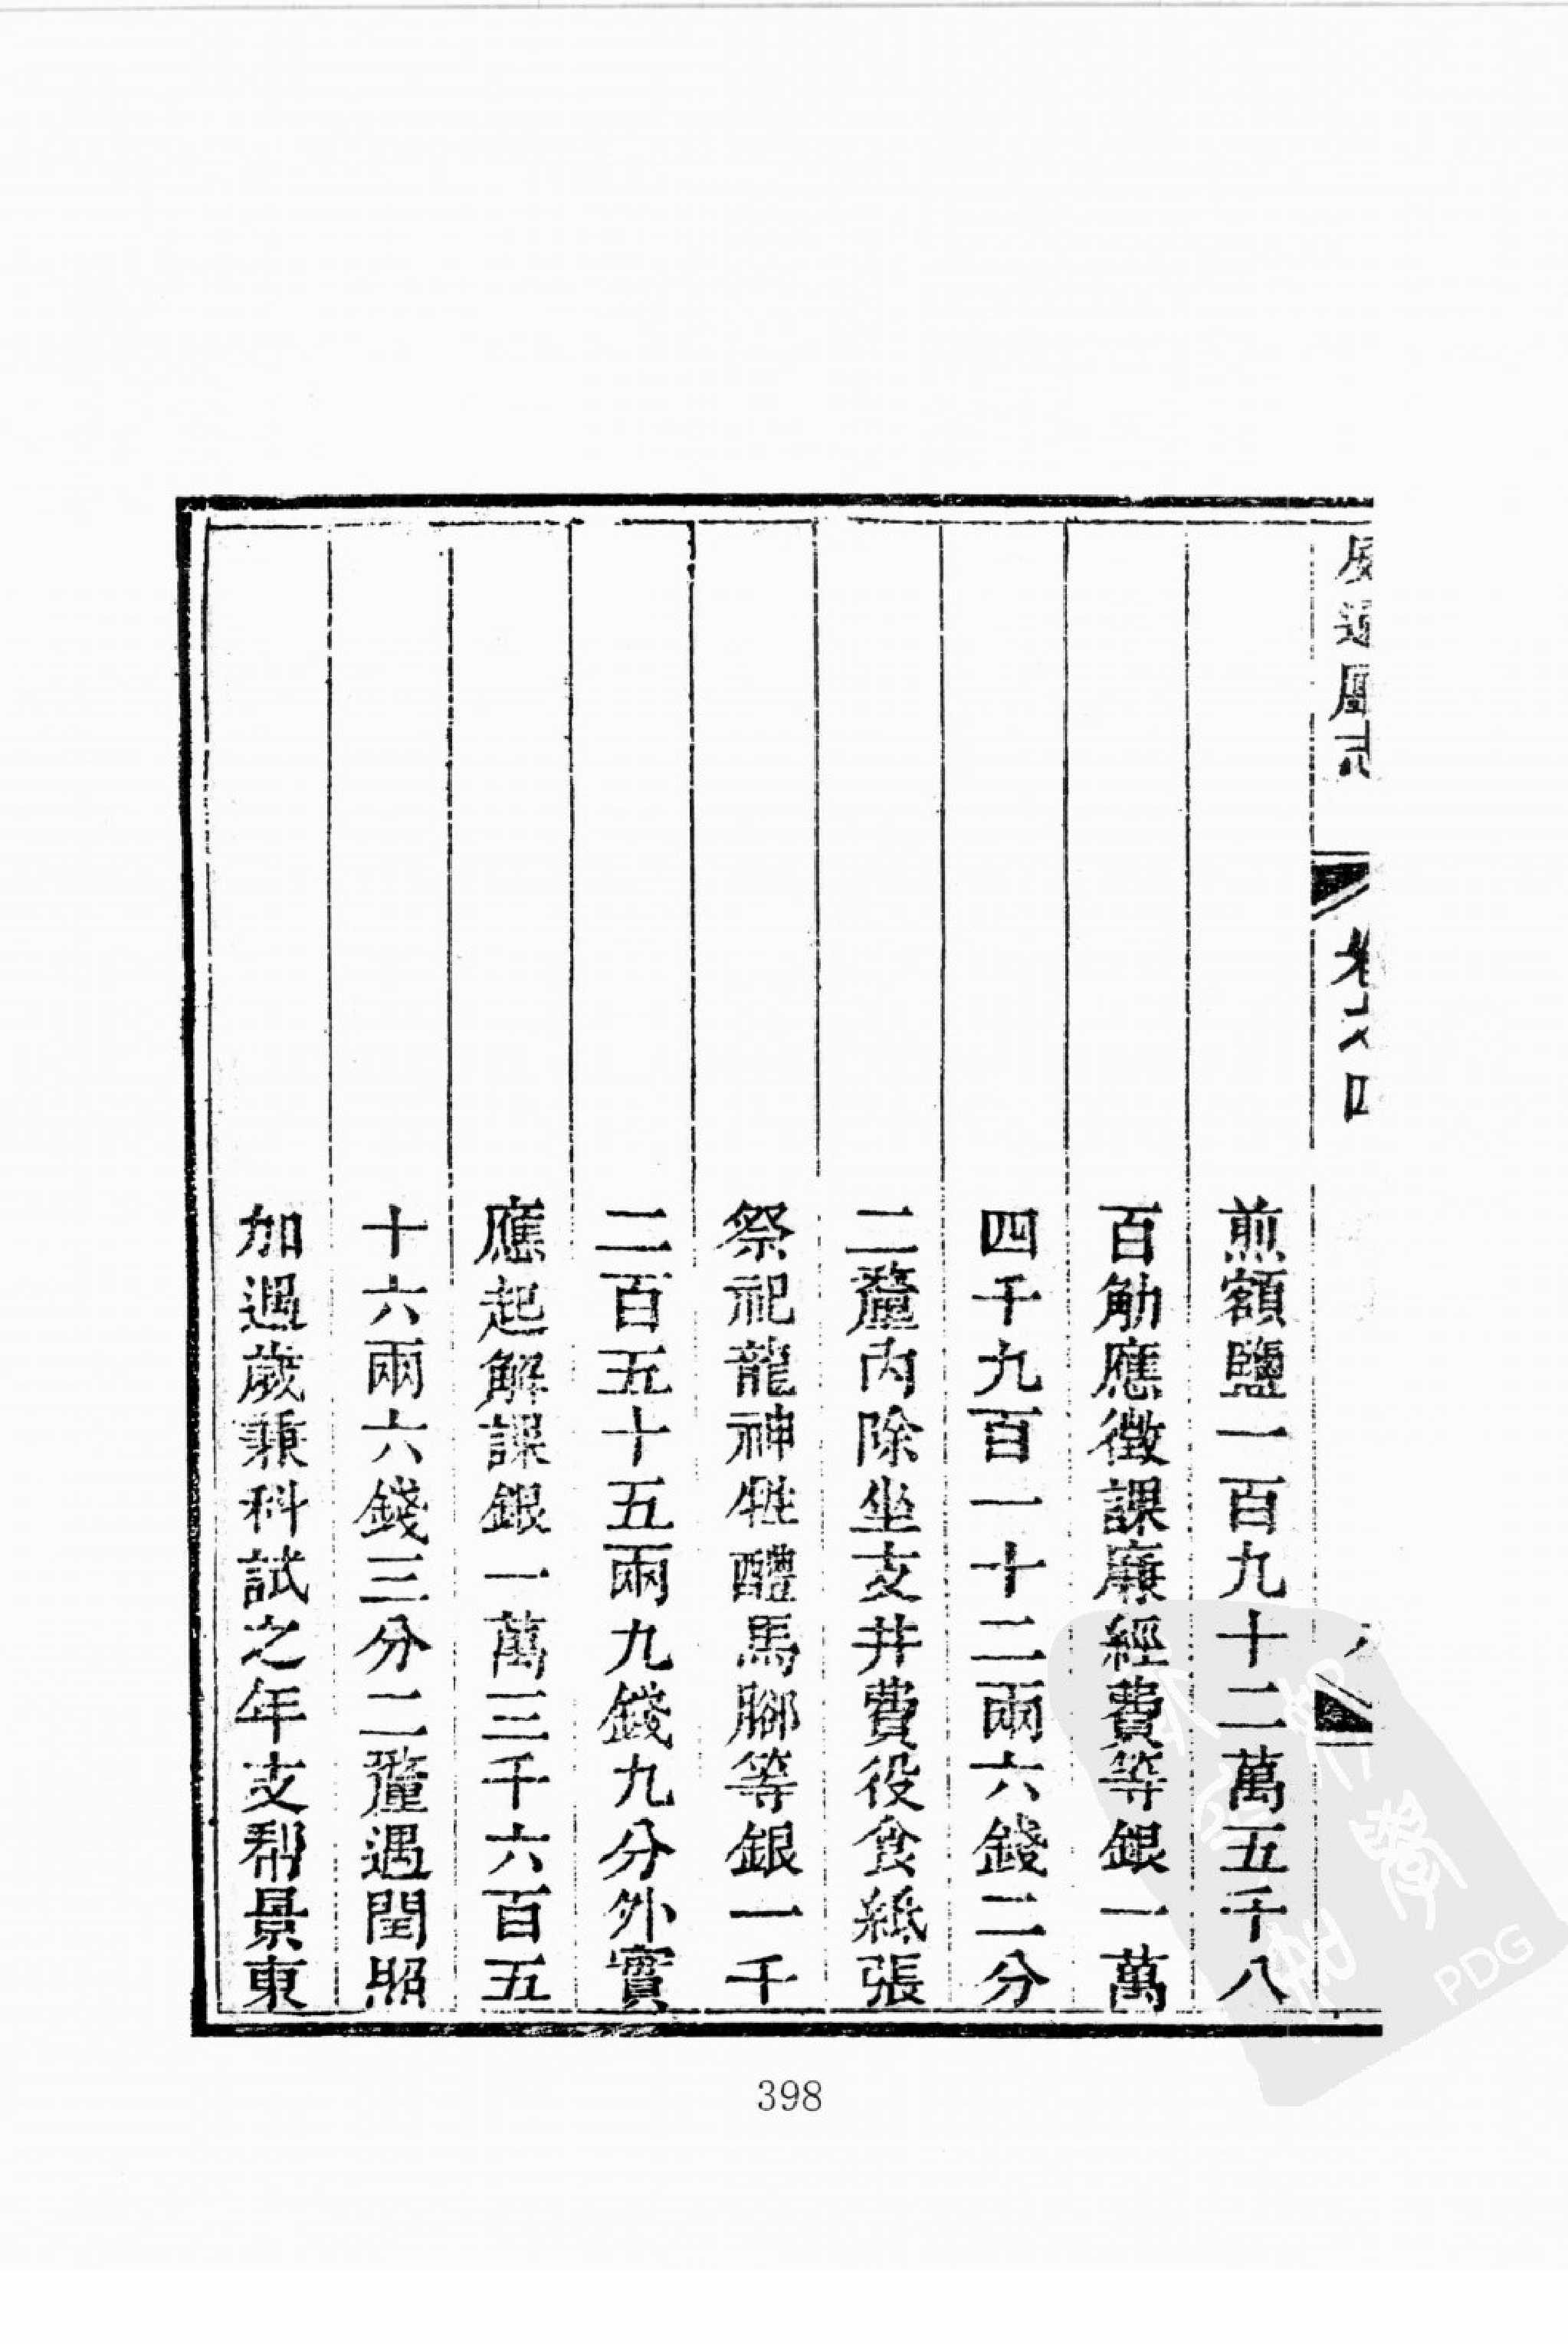 威遠廳志
卷之四
煎額鹽一百九十二萬五千八
百觔應徵課廉經費等銀一萬
四千九百一十二兩六錢二分
二釐內除坐支井費役食紙張
祭祀龍神牲醴馬腳等銀一千
二百五十五兩九錢九分外實
應起解課銀一萬三千六百五
十六兩六錢三分二釐遇閏照
加遇歲兼科試之年支幫景東
398
PDG